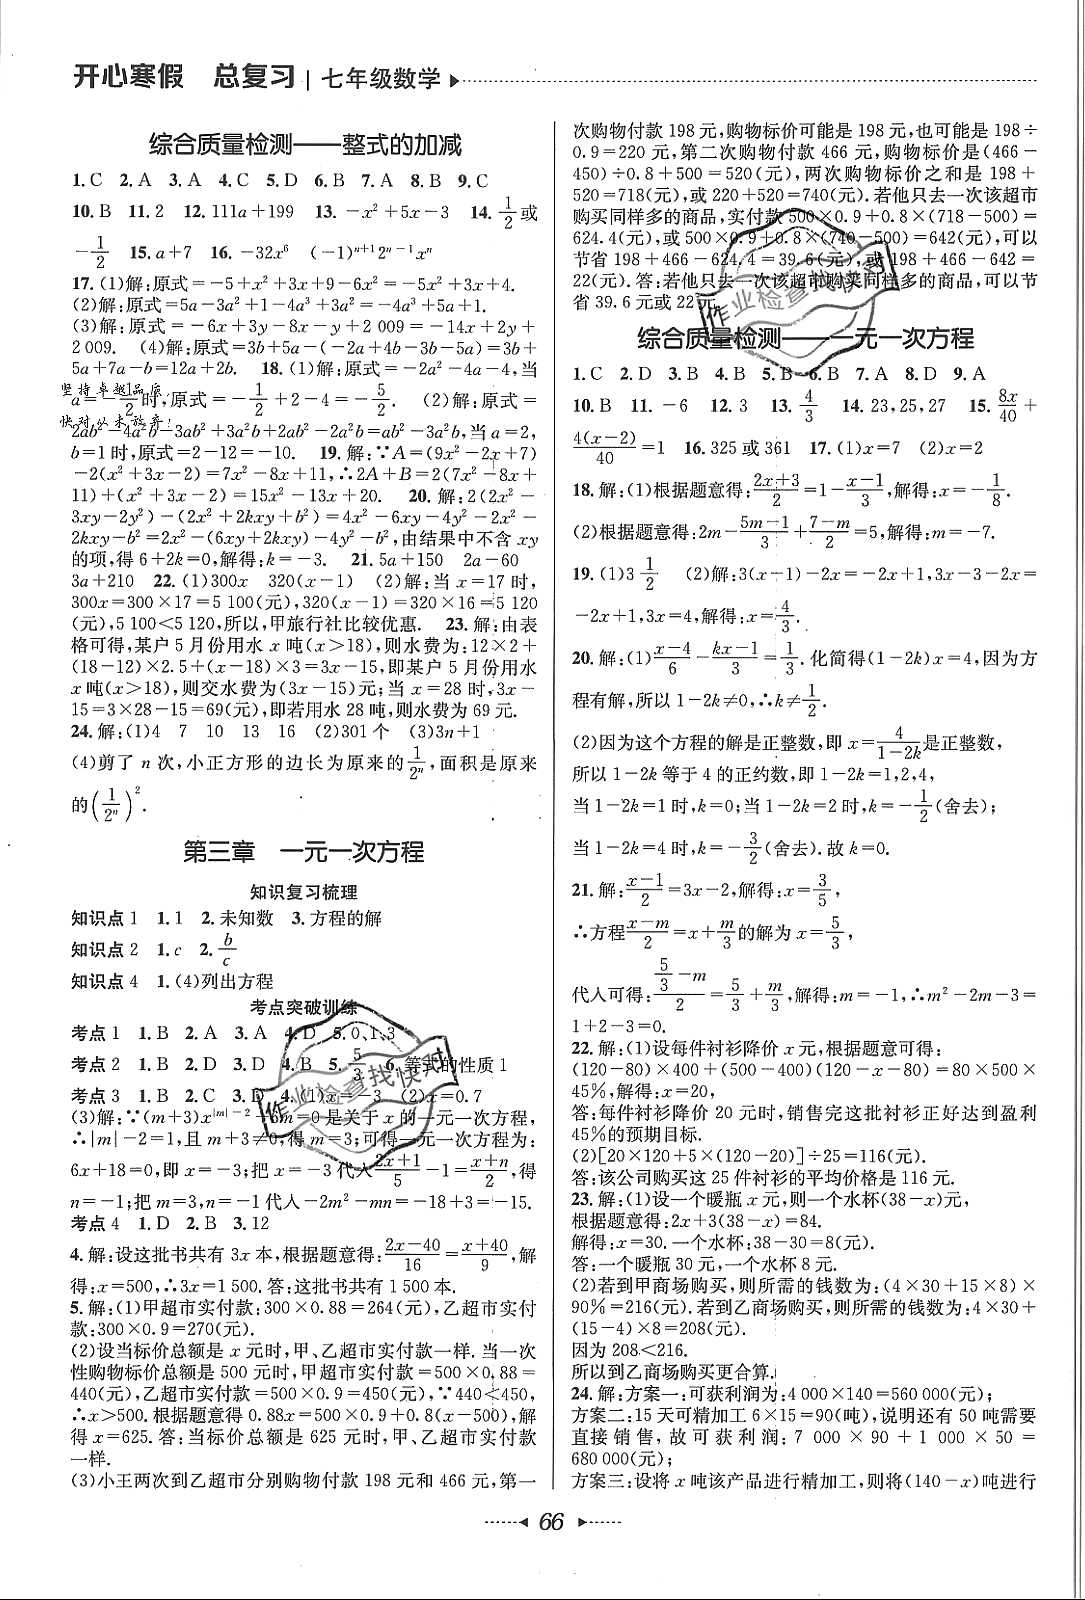 开心寒假 总复习 | 七年级数学
综合质量检测——整式的加减
1.C 2.A 3.A 4.C 5.D 6.B 7.A 8.B 9.C
10.B 11.2 12.111a+199 13.-x²+5x-3 14.1/2或
-1/2 15.a+7 16.-32x⁶ (-1)ⁿ⁺¹2ⁿ⁻¹xⁿ
17.(1)解:原式=-5+x²+3x+9-6x²=-5x²+3x+4.
(2)解:原式=5a-3a²+1-4a³+3a²=-4a³+5a+1.
(3)解:原式=-6x+3y-8x-y+2 009=-14x+2y+
2 009. (4)解:原式=3b+5a-(-2a+4b-3b-5a)=3b+
5a+7a-b=12a+2b. 18.(1)解:原式=-2a²-4a-4,当
坚持卓越品质
a=-1/2时,原式=-1/2+2-4=-5/2. (2)解:原式=
快对从未放弃!
2ab²-4a²b-3ab²+3a²b+2ab²-2a²b=ab²-3a²b,当a=2,
b=1时,原式=2-12=-10. 19.解:∵A=(9x²-2x+7)
-2(x²+3x-2)=7x²-8x+11,∴2A+B=2(7x²-8x+
11)+(x²+3x-2)=15x²-13x+20. 20.解:2(2x²-
3xy-2y²)-(2x²+2kxy+b²)=4x²-6xy-4y²-2x²-
2kxy-b²=2x²-(6xy+2kxy)-4y²-b²,由结果中不含xy
的项,得6+2k=0,解得:k=-3. 21.5a+150 2a-60
3a+210 22.(1)300x 320(x-1) (2)解:当x=17时,
300x=300×17=5 100(元),320(x-1)=320×16=5 120
(元),5 100<5 120,所以,甲旅行社比较优惠. 23.解:由表
格可得,某户5月份用水x吨(x>18),则水费为:12×2+
(18-12)×2.5+(x-18)×3=3x-15,即某户5月份用水
x吨(x>18),则交水费为(3x-15)元;当x=28时,3x-
15=3×28-15=69(元),即若用水28吨,则水费为69元.
24.解:(1)4 7 10 13 16 (2)301个 (3)3n+1
(4)剪了n次,小正方形的边长为原来的1/2ⁿ,面积是原来
的(1/2ⁿ)².
第三章 一元一次方程
知识复习梳理
知识点1 1.1 2.未知数 3.方程的解
知识点2 1.c 2.b/c
知识点4 1.(4)列出方程
考点突破训练
考点1 1.B 2.A 3.A 4.D 5.0,1,3
考点2 1.B 2.D 3.D 4.B 5.5/3 6.等式的性质1
考点3 1.B 2.D 3.D 4.(1)x=-3 (2)x=0.7
(3)解:∵(m+3)x^|m|-2+6m=0是关于x的一元一次方程,
∴|m|-2=1,且m+3≠0,得m=3;可得一元一次方程为:
6x+18=0,即x=-3;把x=-3代入(2x+1)/5-1=(x+n)/2,得
n=-1;把m=3,n=-1代入-2m²-mn=-18+3=-15.
考点4 1.D 2.B 3.12
4.解:设这批书共有3x本,根据题意得:(2x-40)/16=(x+40)/9,解
得:x=500,∴3x=1 500.答:这批书共有1 500本.
5.解:(1)甲超市实付款:300×0.88=264(元),乙超市实付
款:300×0.9=270(元).
(2)设当标价总额是x元时,甲、乙超市实付款一样.当一次
性购物标价总额是500元时,甲超市实付款=500×0.88=
440(元),乙超市实付款=500×0.9=450(元),∵440<450,
∴x>500.根据题意得0.88x=500×0.9+0.8(x-500),解
得x=625.答:当标价总额是625元时,甲、乙超市实付款
一样.
(3)小王两次到乙超市分别购物付款198元和466元,第一
次购物付款198元,购物标价可能是198元,也可能是198÷
0.9=220元,第二次购物付款466元,购物标价是(466-
450)÷0.8+500=520(元),两次购物标价之和是198+
520=718(元),或220+520=740(元).若他只去一次该超市
购买同样多的商品,实付款500×0.9+0.8×(718-500)=
624.4(元),或500×0.9+0.8×(740-500)=642(元),可以
节省198+466-624.4=39.6(元),或198+466-642=
22(元).答:若他只去一次该超市购买同样多的商品,可以节
省39.6元或22元.
作业检查找快对
综合质量检测——一元一次方程
1.C 2.D 3.B 4.B 5.B 6.B 7.A 8.D 9.A
10.B 11.-6 12.3 13.4/3 14.23,25,27 15.8x/40+
4(x-2)/40=1 16.325或361 17.(1)x=7 (2)x=2
18.解:(1)根据题意得:(2x+3)/2=1-(x-1)/3,解得:x=-1/8.
(2)根据题意得:2m-(5m-1)/3+(7-m)/2=5,解得:m=-7.
19.(1)3 1/2 (2)解:3(x-1)-2x=-2x+1,3x-3-2x=
-2x+1,3x=4,解得:x=4/3.
20.解:(1)(x-4)/6-(kx-1)/3=1/3.化简得(1-2k)x=4,因为方
程有解,所以1-2k≠0,∴k≠1/2.
(2)因为这个方程的解是正整数,即x=4/(1-2k)是正整数,
所以1-2k等于4的正约数,即1-2k=1,2,4,
当1-2k=1时,k=0;当1-2k=2时,k=-1/2(舍去);
当1-2k=4时,k=-3/2(舍去).故k=0.
21.解:(x-1)/2=3x-2,解得:x=3/5,
∴方程(x-m)/2=x+m/3的解为x=5/3,
代入可得:(5/3-m)/2=5/3+m/3,解得:m=-1,∴m²-2m-3=
1+2-3=0.
22.解:(1)设每件衬衫降价x元,根据题意可得:
(120-80)×400+(500-400)(120-x-80)=80×500×
45%,解得:x=20.
答:每件衬衫降价20元时,销售完这批衬衫正好达到盈利
45%的预期目标.
(2)[20×120+5×(120-20)]÷25=116(元).
答:该公司购买这25件衬衫的平均价格是116元.
23.解:(1)设一个暖瓶x元,则一个水杯(38-x)元,
根据题意得:2x+3(38-x)=84.
解得:x=30.一个水杯:38-30=8(元).
答:一个暖瓶30元,一个水杯8元.
(2)若到甲商场购买,则所需的钱数为:(4×30+15×8)×
90%=216(元).若到乙商场购买,则所需的钱数为:4×30+
(15-4)×8=208(元).
因为208<216.
所以到乙商场购买更合算.
24.解:方案一:可获利润为:4 000×140=560 000(元);
方案二:15天可精加工6×15=90(吨),说明还有50吨需要
直接销售,故可获利润:7 000×90+1 000×50=
680 000(元);
方案三:设将x吨该产品进行精加工,则将(140-x)吨进行
作业检查找快对
66